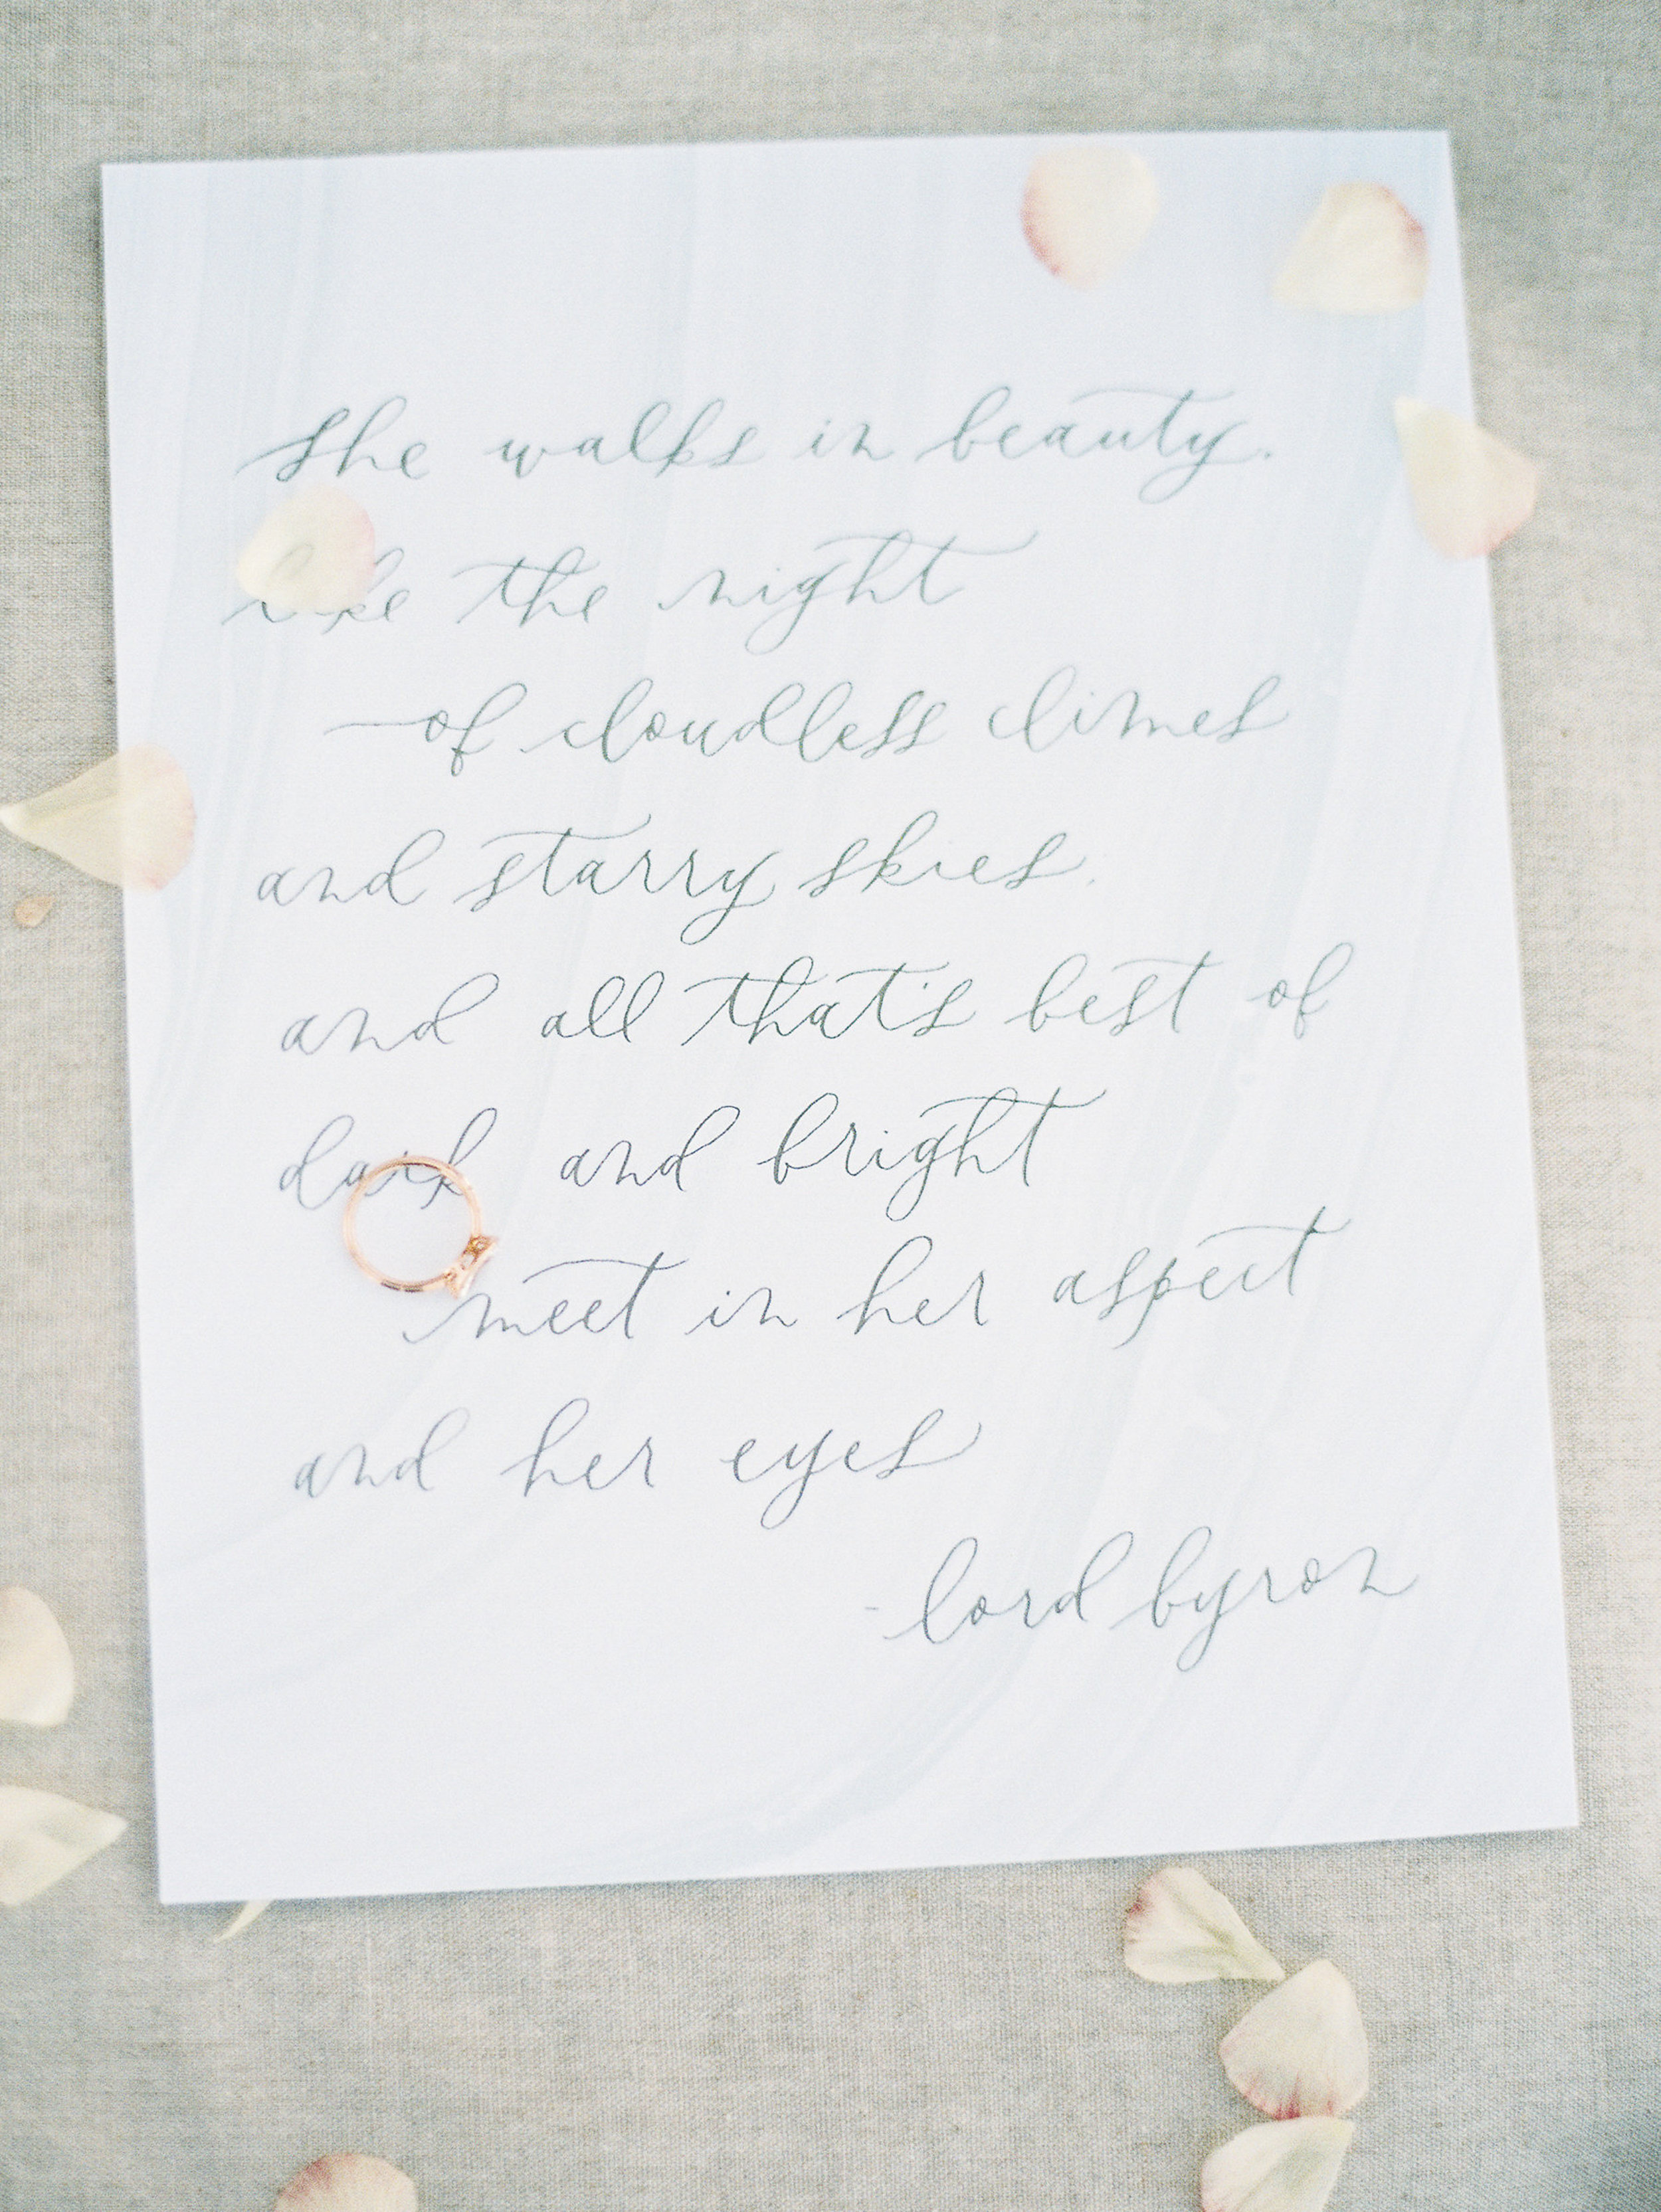 She walks in beauty.
like the night
of cloudless climes
and starry skies.
and all that's best of
dark and bright
meet in her aspect
and her eyes
-lord byron